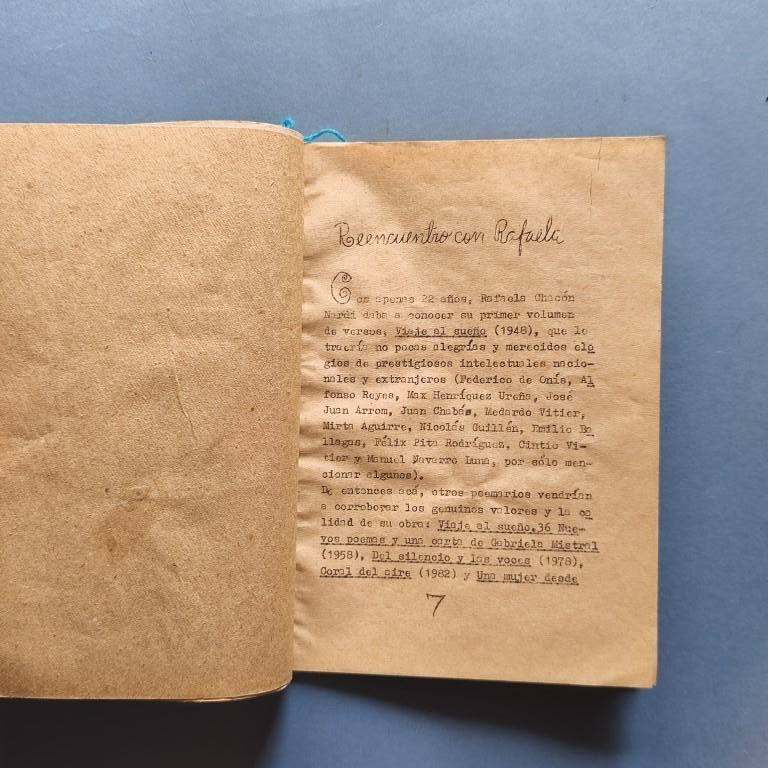 Reencuentro con Rafaela
Con apenas 22 años, Rafaela Chacón
Nardi daba a conocer su primer volumen
de versos, Viaje al sueño (1948), que le
traería no pocas alegrías y merecidos elo
gios de prestigiosos intelectuales nacio-
nales y extranjeros (Federico de Onís, Al
fonso Reyes, Max Henríquez Ureña, José
Juan Arrom, Juan Chabás, Medardo Vitier,
Mirta Aguirre, Nicolás Guillén, Emilio Ba
llagas, Félix Pita Rodríguez, Cintio Vi-
tier y Manuel Navarro Luna, por sólo men-
cionar algunos).
De entonces acá, otros poemarios vendrían
a corroborar los genuinos valores y la ca
lidad de su obra: Viaje al sueño.36 Nue-
vos poemas y una carta de Gabriela Mistral
(1958), Del silencio y las voces (1978),
Coral del aire (1982) y Una mujer desde
7